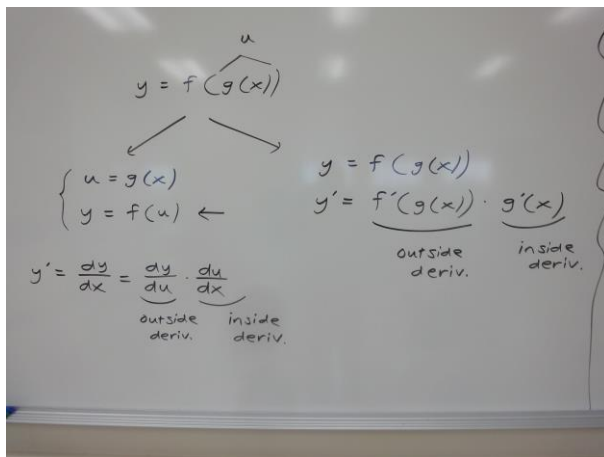 u
y = f(g(x))
u = g(x)
y = f(u) ←
y' = dy/dx = dy/du · du/dx
outside deriv. inside deriv.
y = f(g(x))
y' = f'(g(x)) · g'(x)
outside deriv. inside deriv.